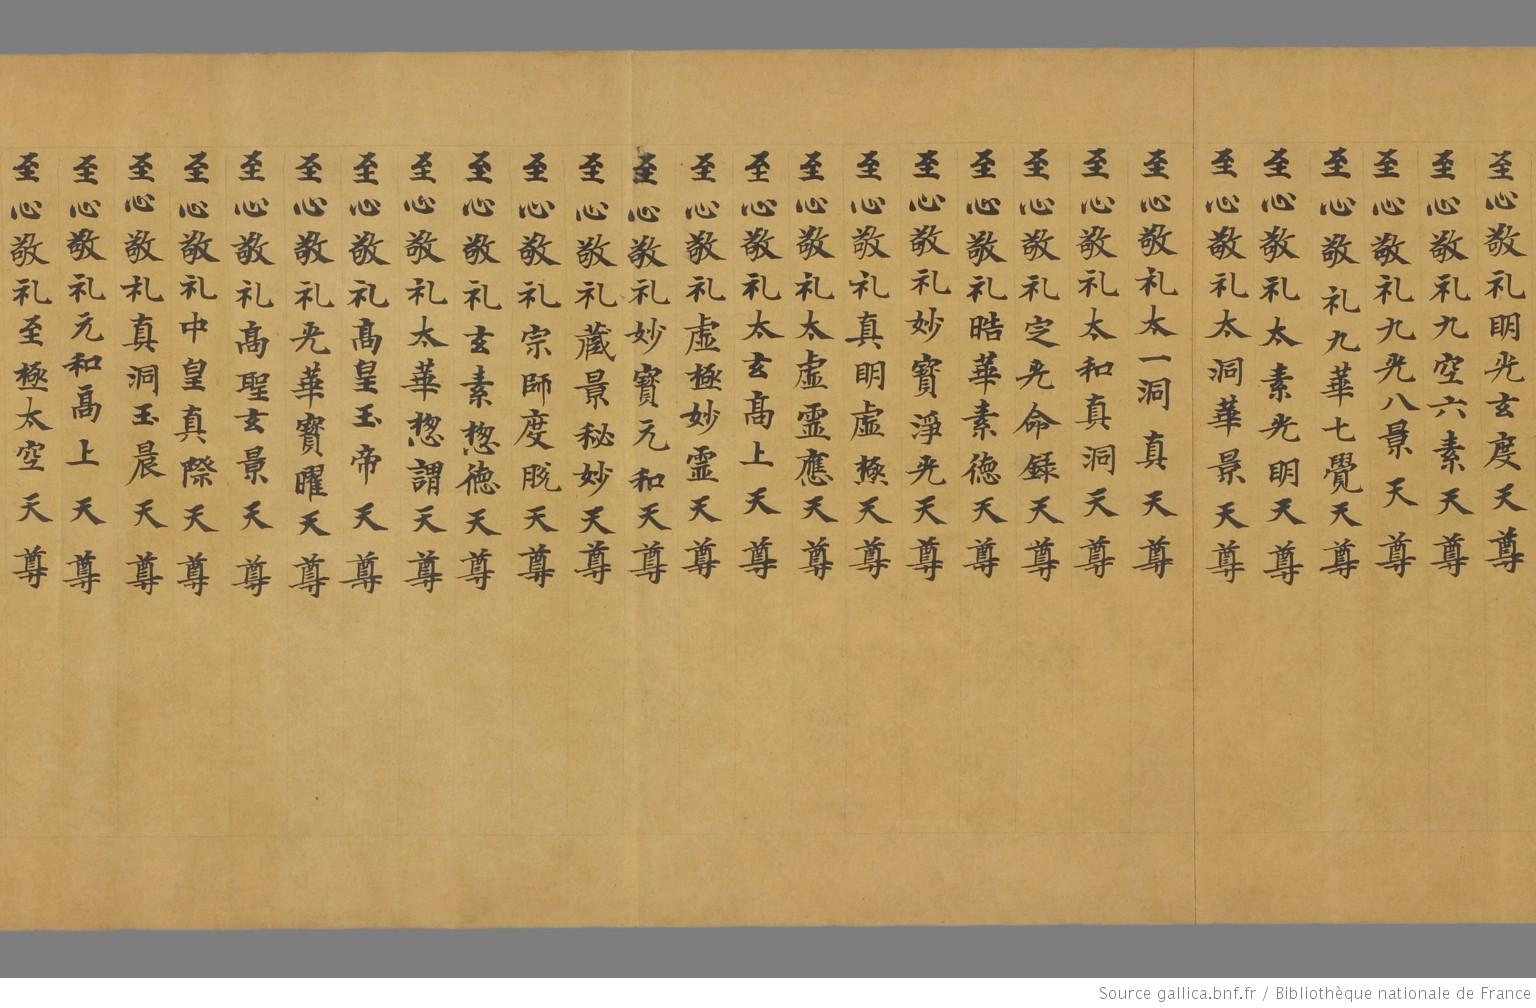 至心敬礼明光玄度天尊
至心敬礼九空六素天尊
至心敬礼九光八景天尊
至心敬礼九華七覺天尊
至心敬礼太素光明天尊
至心敬礼太洞華景天尊
至心敬礼太一洞真天尊
至心敬礼太和真洞天尊
至心敬礼定光命録天尊
至心敬礼晧華素徳天尊
至心敬礼妙寳淨光天尊
至心敬礼真明虚極天尊
至心敬礼太虚霊應天尊
至心敬礼太玄髙上天尊
至心敬礼虚極妙霊天尊
至心敬礼妙寳元和天尊
至心敬礼藏景秘妙天尊
至心敬礼宗師度脱天尊
至心敬礼玄素惣徳天尊
至心敬礼太華惣謂天尊
至心敬礼髙皇玉帝天尊
至心敬礼光華寳曜天尊
至心敬礼髙聖玄景天尊
至心敬礼中皇真際天尊
至心敬礼真洞玉晨天尊
至心敬礼元和髙上天尊
至心敬礼至極太空天尊
Source gallica.bnf.fr / Bibliothèque nationale de France